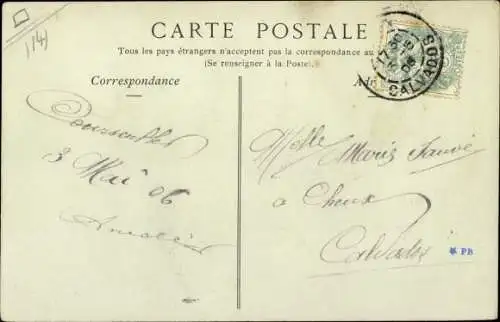 (14)
CARTE POSTALE
Tous les pays étrangers n'acceptent pas la correspondance au
(Se renseigner à la Poste)
Correspondance
CALVADOS
Courseulles
3 Mai 06
Melle Marie
à Cheux
Calvados
* PB